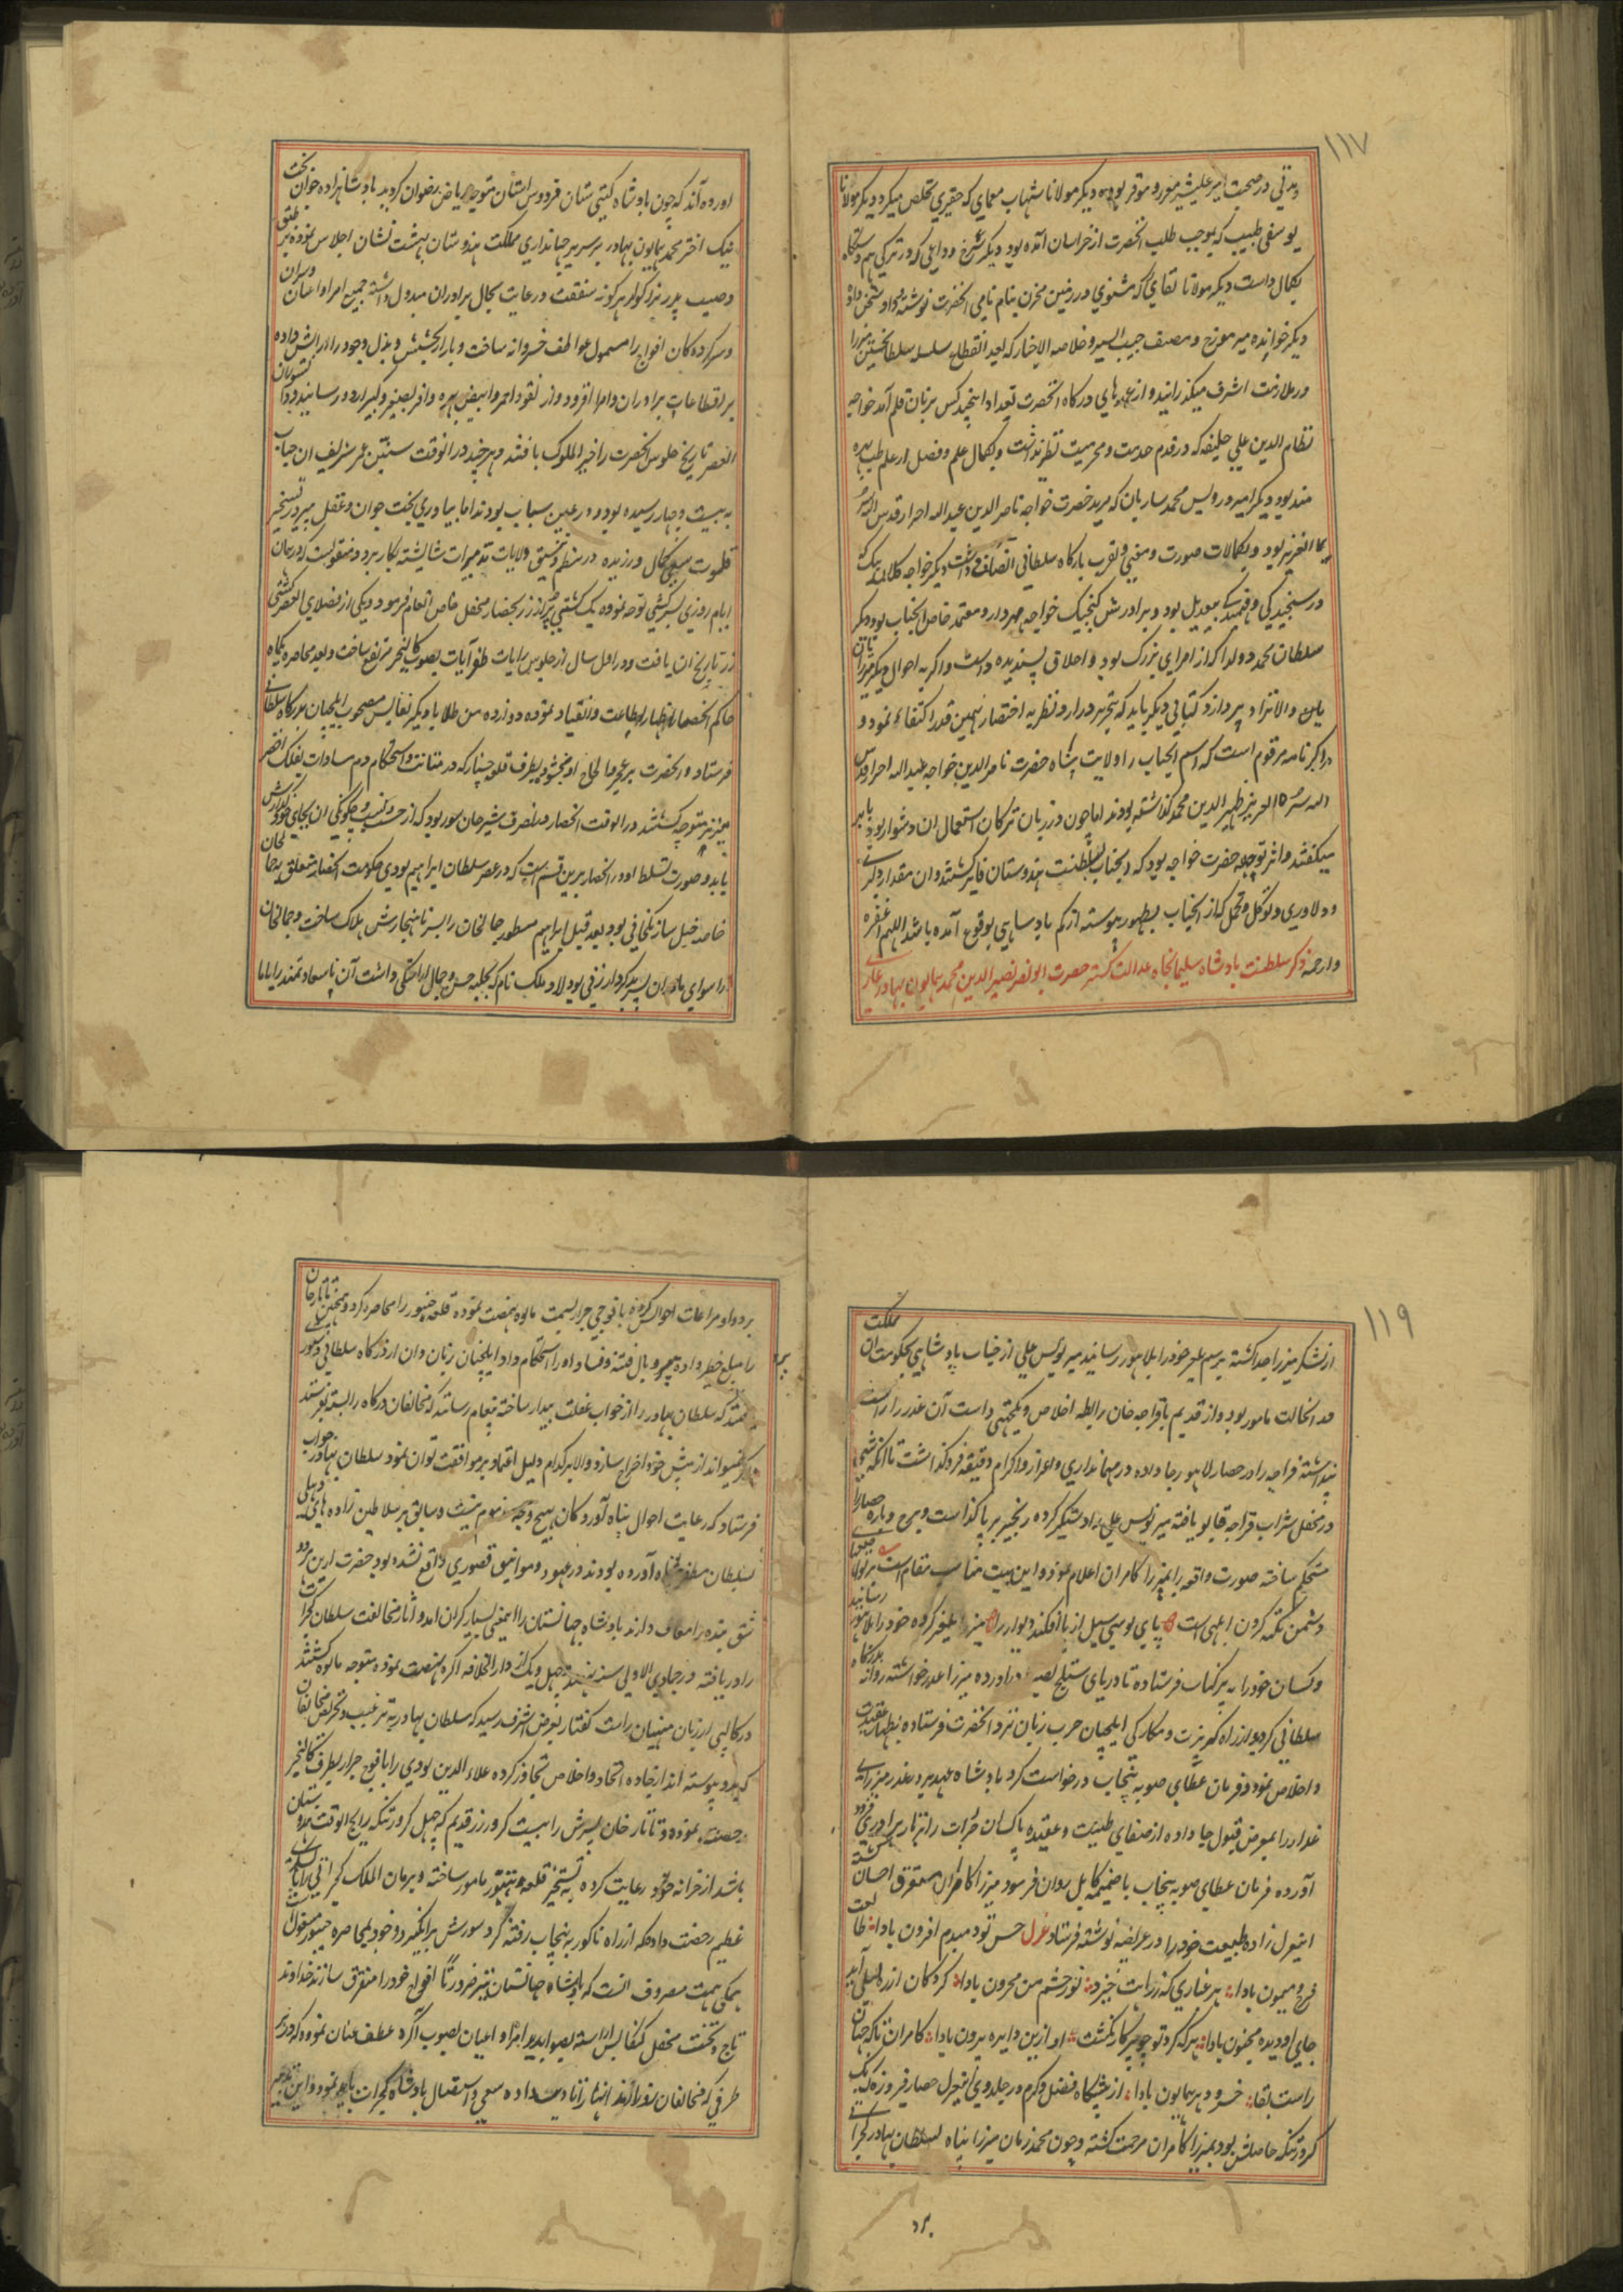 ۱۱۷
مدتی در صحبت امیر علیشیر معزز و موقر بوده دیگر مولانا شهاب معمای که حقیری تخلص میکرد دیگر مولانا
یوسفی طبیب که بموجب طلب انحضرت از خراسان آمده بود دیگر سرخ وداعی که در ترکی هم دستگاه
بکمال داشت دیگر مولانا بقای که مثنوی در زمین مخزن بنام نامی انحضرت نوشته
دیگر خوانده میر مورخ و مصنف حبیب السیر و خلاصه الاخبار که بعد انقطاع سلسله سلطانحسین میرزا
در ملازمت اشرف میگذرانید و از عمدهای درگاه انحضرت تعداد اینچند کس بزبان قلم آمد خواجه
نظام الدین علی خلیفه که در قدم خدمت و محرمیت نظیر نداشت و بکمال علم و فضل از علم طب بهره
مند بود دیگر امیر درویس محمد ساربان که مرید حضرت خواجه ناصر الدین عبد الله احرار قدس الله سره
العزیز بود و بکمالات صورت و معنی و بقرب بارگاه سلطانی اتصاف داشت دیگر خواجه کلان بیک که
در سنجیدگی و فهمیدگی بیبدیل بود و برادرش کیچیک خواجه مهردار و معتمد خاص انجناب بود دیگر
سلطان محمد دولدا که از امرای بزرگ بود و اخلاق پسندیده داشت و اگر به احوال دیگر
پردازد کتابی دیگر باید که بتحریر درارد نظر به اختصار بهمین قدر اکتفاء نمود و
در اکبر نامه مرقوم است که اسم انجناب را ولایت پناه حضرت ناصر الدین خواجه عبد الله احرار قدس
الله سره العزیز ظهیر الدین محمد گذاشته بودند اما چون در زبان ترکان استعمال ان دشوار بود بابر
میگفتند و اثر توجه حضرت خواجه بود که انجناب بسلطنت هندوستان فایز گشتند و ان مقدار دلیری
و دلاوری و توکل و تحمل که از انجناب بظهور پیوسته از کم پادساهی بوقوع آمده باشد اللهم اغفره
وارحمه ذکر سلطنت بادشاه سلیمانجاه عدالت گستر حضرت ابو نصر نصیر الدین محمد همایون بهادر غازی
اورده اند که چون بادشاه گیتی ستان فردوس اشیان متوجه ریاض رضوان گردید بادشاهزاده جوان بخت
نیک اختر محمد همایون بهادر بر سریر جهانداری مملکت هندوستان بهشت نشان اجلاس نموده بر طبق
وصیت پدر بزرگوار هرگونه شفقت و رعایت بحال برادران مبدول داشته جمیع امرا و اعیان و سران
و سرکرده کان افواج را مشمول عواطف خسروانه ساخت و بازار بخشش و بذل وجود را ارایش داده
بر اقطاعات برادران و امرا افزود و از نقود احمر و ابیض بهره وافر بصغیر و کبیر اردو رسانید
العصر تاریخ جلوس انحضرت را خیر الملوک یافتند و هرچند در انوقت سنین عمر شریف ان جناب
به بیست و چهار رسیده بود و در عین سباب بودند اما بیاوری بخت جوان و عقل پیر در تسخیر
سعی کمال ورزیده در نظم و نسق ولایات تدبیرات شایسته بکار برد و منقولست که در همان
ایام روزی بسیر کشتی توجه نموده یک کشتی پر از زر بحضار محفل خاص انعام فرمود و یکی از فضلای العصر کشتی
زر تاریخ ان یافت و در اول سال از جلوس رایات ظفر آیات بصوب کالنجر مرتفع ساخت و بعد محاصره یکماه
حاکم انحصار اظهار اطاعت و انقیاد نموده دوازده من طلا با دیگر نفایس مصحوب ایلچیان بدرگاه سلطانی
فرستاد و انحضرت بر عجز و الحاح او بخشوده بطرف قلعه چنار که در متانت و استحکام دم مساوات بفلک اخضر
میزند متوجه گشتند در انوقت انحصار در تصرف شیر خان سور بود که از حسب و نسب و چگونگی ان بجای خود گذارش
یابد و صورت تسلط او در انحصار برین قسم است که در عصر سلطان ابراهیم لودی حکومت انحصار متعلق بجمال خان
خاصه خیل سارنگخانی بود و بعد قتل ابراهیم مسطور جمالخان را پسر ناهنجارش هلاک ساخت و جمالخان
را سوای مادر ان پسر بدکردار زنی بود لاد ملک نام که بحلیه حسن و جمال اراستگی داشت آن ناسعادتمند را با بابا
۱۱۹
از لشکر میرزا جدا گشته برسم یلغر خود را بلاهور رسانید میر یونس علی از جناب پادشاهی بحکومت ان مملکت
مامور بود و از قدیم با قراجه خان رابطه اخلاص و یکجهتی داست آن غدر را راست
پنداشته قراجه را در حصار لاهور جا داده در مهمانداری و اعزاز و اکرام دقیقه فرو گذاشت تا انکه شبی
در محفل شراب قراجه قابو یافته میر یونس علی را دستگیر کرده زنجیر بر پا گذاست و برج و باره حصار را
مستحکم ساخته صورت واقعه را بمیرزا کامران اعلام نمود و این بیت مناسب مقام است بر تواضعهای
دشمن تکیه کردن ابلهی است پای بوسی سیل از پا افکند دیوار را میرزا یلغر کرده خود را بلاهور رسانید
و کسان خود را به پرگنات فرستاده تا دریای ستلج بقبضه دراورده میرزا عذر خواسته روانه بدرگاه
سلطانی گردید و از راه گربزت و مکارگی ایلچیان چرب زبان نزد انحضرت فرستاده بنظهار عقیدت
و اخلاص نمود و فرمان عطای صوبه پنجاب درخواست کرد بادشاه عهد پرور عذر میرزای
غدار را بمعرض قبول جا داده از صفای طینت و عقیده پاک ان جرات را نثار برادری فرود
آورده فرمان عطای صوبه پنجاب با ضمیمه کابل روان فرمود میرزا کامران مستغرق احسان گشته
اینغزل زاده طبیعت خود را در عریضه نوشته فرستاد غزل حسن تو دمبدم افزون بادا طالعت
فرخ و میمون بادا هر غباری که ز راهت خیزد نور چشم من محزون بادا گرد کان از ره لیلی آید
جای او دیده مجنون بادا هر که گرد تو چو پرکار نگشت او ازین دایره بیرون بادا کامران تا که جهان
راست بقا خسرو دهر همایون بادا از پیشگاه فضل و کرم در جلدوی اینغزل حصار فیروزه که یک
کرور تنکه حاصلش بود بمیرزا کامران مرحمت گشته و چون محمد زمان میرزا پناه بسلطان بهادر گجراتی
برد
برد و او مراعات احوالش کرده با فوجی جرار بسمت مالوه نهضت نموده قلعه چیتور را محاصره کرد و همچنین تاتارخان
را مبلغ خطیر داده سر و بال فتنه و فساد او را استحکام داد ایلچیان زبان دان از درگاه سلطانی دستور
یافتند که سلطان بهادر را از خواب غفلت بیدار ساخته پیغام رسانند که مخالفان درگاه را بسته بفرستند
و اگر نمیتواند از پیش خود اخراج سازد والا بر کدام دلیل اعتماد بر موافقت توان نمود سلطان بهادر جواب
فرستاد که رعایت احوال پناه آوردگان بهیچ وجه مذموم نیست و سابق بر سلاطین زاده های دهلی
بسلطان مظفر پناه آورده بودند در عهود و مواثیق قصوری واقع نشده بود حضرت ازین مرد
شق بنده را معاف دارند بادشاه جهانستان را اینمعنی بسیار گران امد و آثار مخالفت سلطان گجرات
را دریافته در جمادی الاولی سنه نهصد و چهل و یک از دار الخلافه اگره نهضت نموده متوجه مالوه گشتند
در کالپی از زبان منهیان راست گفتار بعرض اشرف رسید که سلطان بهادر به ترغیب و تحریض مخالفان
گردید و پیوسته اند از جاده اتحاد و اخلاص تجاوز کرده علاء الدین لودی را با فوج جرار بطرف کالنجر
رخصت نموده و تاتار خان پسرش را بیست کرور زر قدیم که چهل کرور تنکه رایج الوقت هندوستان
باشد از خزانه خود رعایت کرده به تسخیر قلعه رنتنبور مامور ساخته و برهان الملک گجراتی را با لشکری
عظیم رخصت داده که از راه ناگور به پنجاب رفته گرد شورش برانگیزد و خود بمحاصره چیتور مشغول است
همگی همت مصروف انست که بادشاه جهانستان نیز ضرورتاً افواج خود را متفرق سازند خداوند
تاج و تخت محفل کنکاش اراسته بصوابدید امرا و اعیان بصوب آگره عطف عنان نموده که در هر
طرفی که مخالفان سر برارند انها را تادیب داده سعی و استقبال بادشاه گجرات باید نمود و این